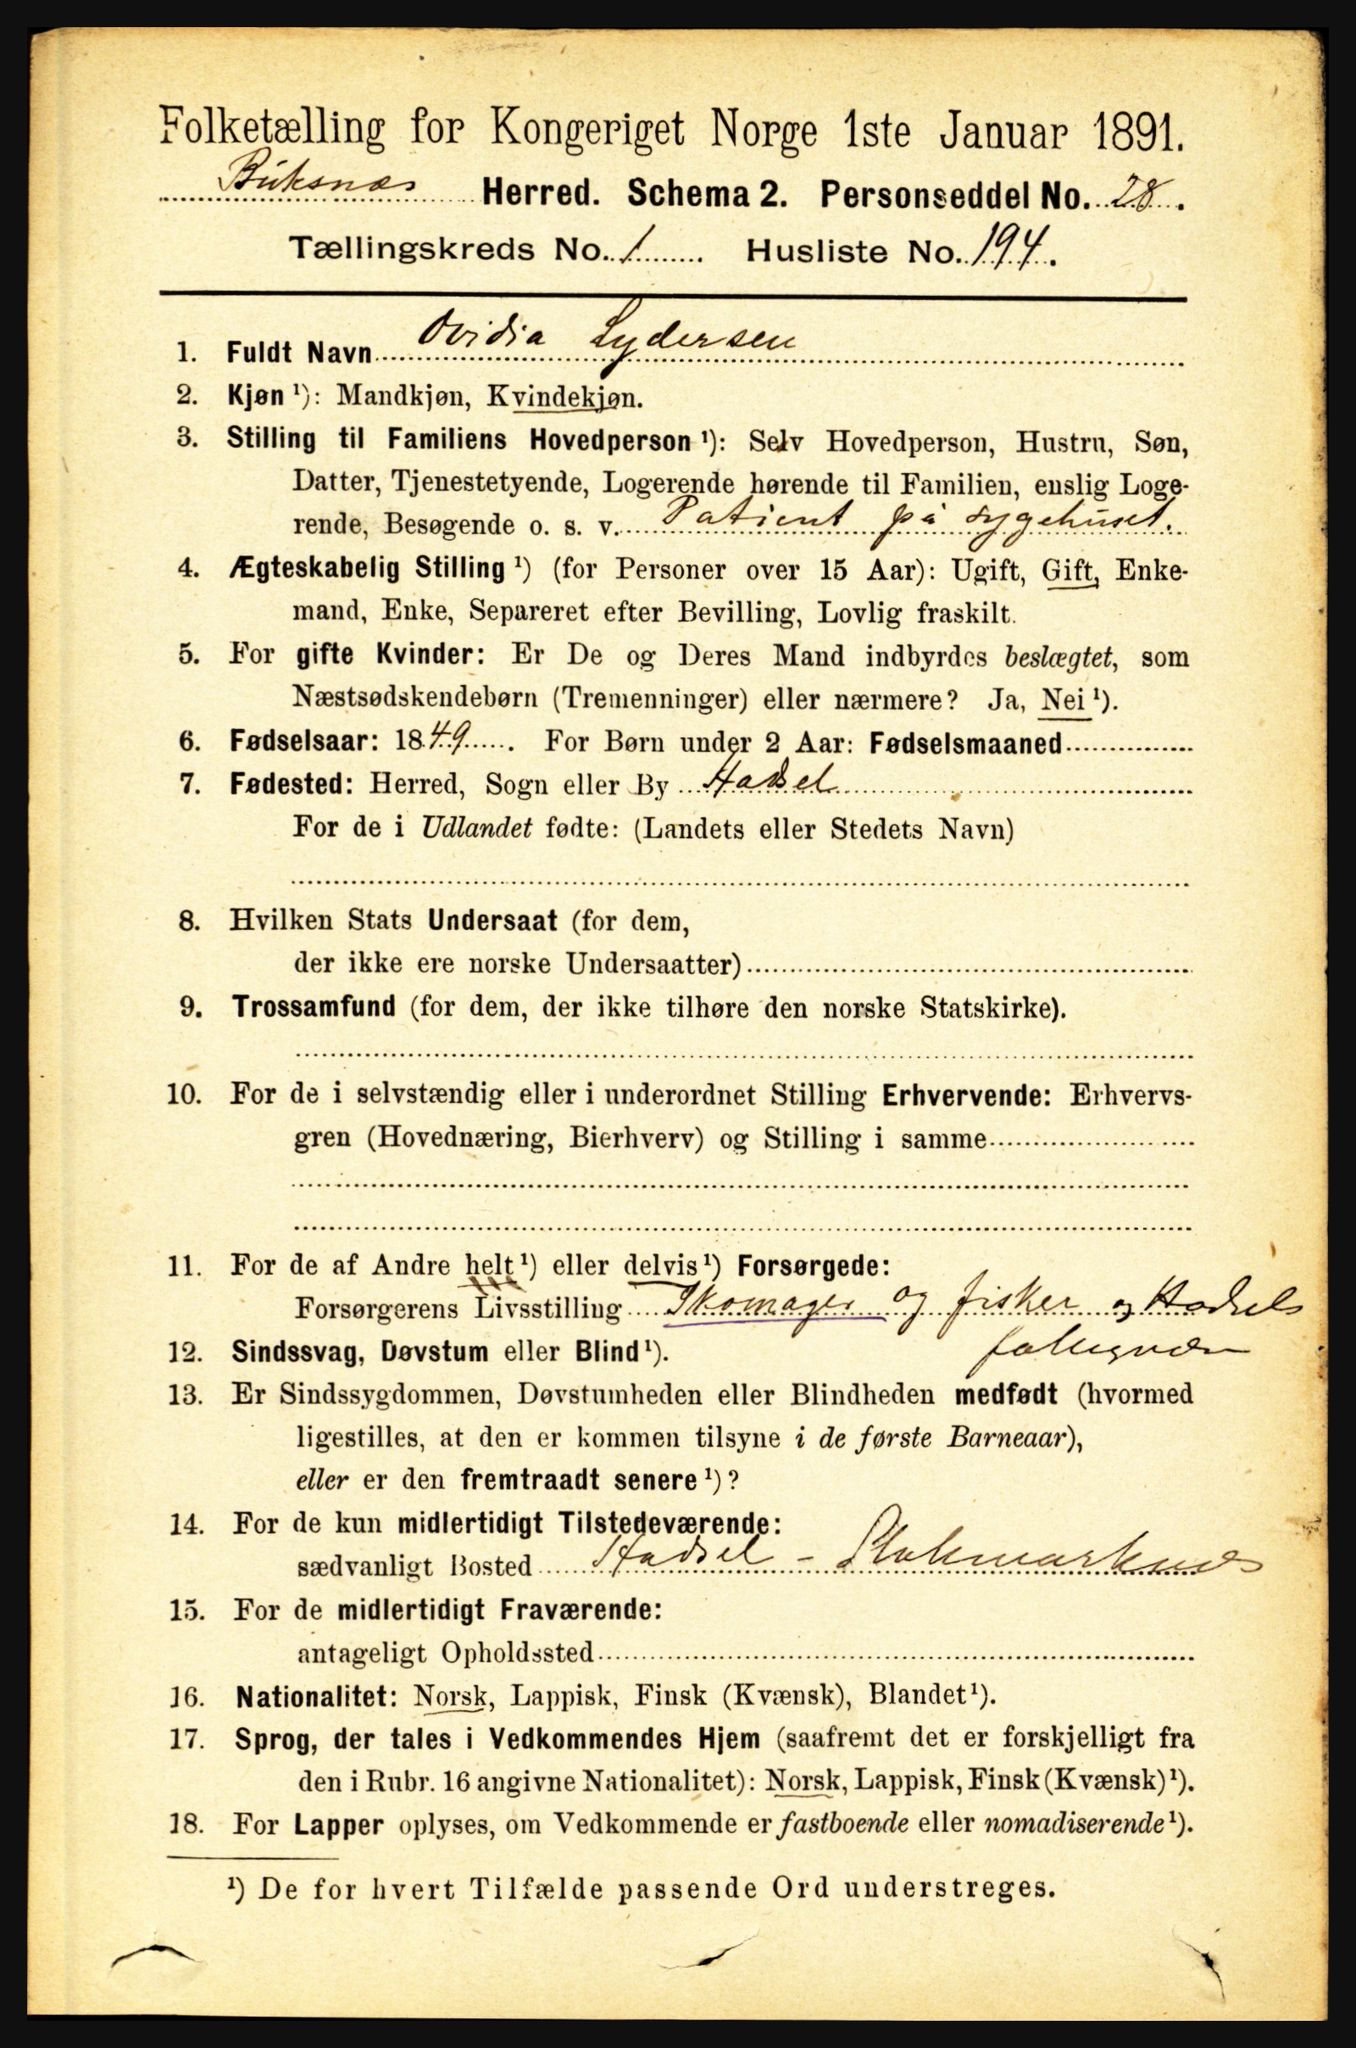 Folketælling for Kongeriget Norge 1ste Januar 1891.
Buksnæs Herred. Schema 2. Personseddel No. 28.
Tællingskreds No. 1 Husliste No. 194.
1. Fuldt Navn Ovidia Lydersen
2. Kjøn ¹): Mandkjøn, Kvindekjøn.
3. Stilling til Familiens Hovedperson ¹): Selv Hovedperson, Hustru, Søn,
Datter, Tjenestetyende, Logerende hørende til Familien, enslig Loge-
rende, Besøgende o. s. v. Patient på sygehuset.
4. Ægteskabelig Stilling ¹) (for Personer over 15 Aar): Ugift, Gift, Enke-
mand, Enke, Separeret efter Bevilling, Lovlig fraskilt.
5. For gifte Kvinder: Er De og Deres Mand indbyrdes beslægtet, som
Næstsødskendebørn (Tremenninger) eller nærmere? Ja, Nei ¹).
6. Fødselsaar: 1849. For Børn under 2 Aar: Fødselsmaaned
7. Fødested: Herred, Sogn eller By Hadsel
For de i Udlandet fødte: (Landets eller Stedets Navn)
8. Hvilken Stats Undersaat (for dem,
der ikke ere norske Undersaatter)
9. Trossamfund (for dem, der ikke tilhøre den norske Statskirke).
10. For de i selvstændig eller i underordnet Stilling Erhvervende: Erhvervs-
gren (Hovednæring, Bierhverv) og Stilling i samme
11. For de af Andre helt ¹) eller delvis ¹) Forsørgede:
Forsørgerens Livsstilling Skomager og fisker og Hadsels
12. Sindssvag, Døvstum eller Blind ¹). fattigvæsen
13. Er Sindssygdommen, Døvstumheden eller Blindheden medfødt (hvormed
ligestilles, at den er kommen tilsyne i de første Barneaar),
eller er den fremtraadt senere ¹)?
14. For de kun midlertidigt Tilstedeværende:
sædvanligt Bosted Hadsel - Stokmarknæs
15. For de midlertidigt Fraværende:
antageligt Opholdssted
16. Nationalitet: Norsk, Lappisk, Finsk (Kvænsk), Blandet ¹).
17. Sprog, der tales i Vedkommendes Hjem (saafremt det er forskjelligt fra
den i Rubr. 16 angivne Nationalitet): Norsk, Lappisk, Finsk (Kvænsk) ¹).
18. For Lapper oplyses, om Vedkommende er fastboende eller nomadiserende ¹).
¹) De for hvert Tilfælde passende Ord understreges.